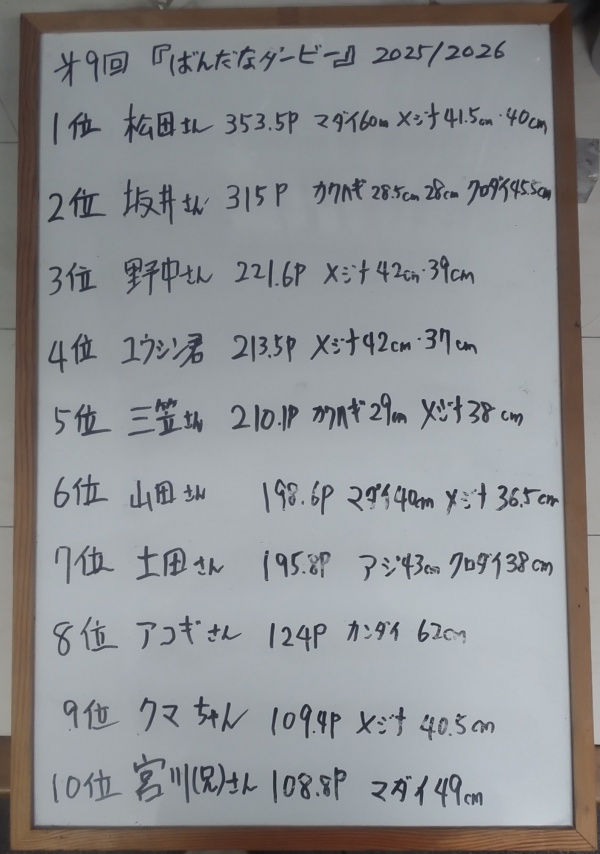 第9回『ばんだなダービー』2025/2026
1位 松田さん 353.5P マダイ60cm メジナ41.5cm・40cm
2位 坂井さん 315P カワハギ28.5cm 28cm クロダイ45.5cm
3位 野中さん 221.6P メジナ42cm・39cm
4位 ユウシン君 213.5P メジナ42cm・37cm
5位 三笠さん 210.1P カワハギ29cm メジナ38cm
6位 山田さん 198.6P マダイ40cm メジナ36.5cm
7位 土田さん 195.8P アジ43cm クロダイ38cm
8位 アコギさん 124P カンダイ 62cm
9位 クマちゃん 109.4P メジナ 40.5cm
10位 宮川(兄)さん 108.8P マダイ49cm